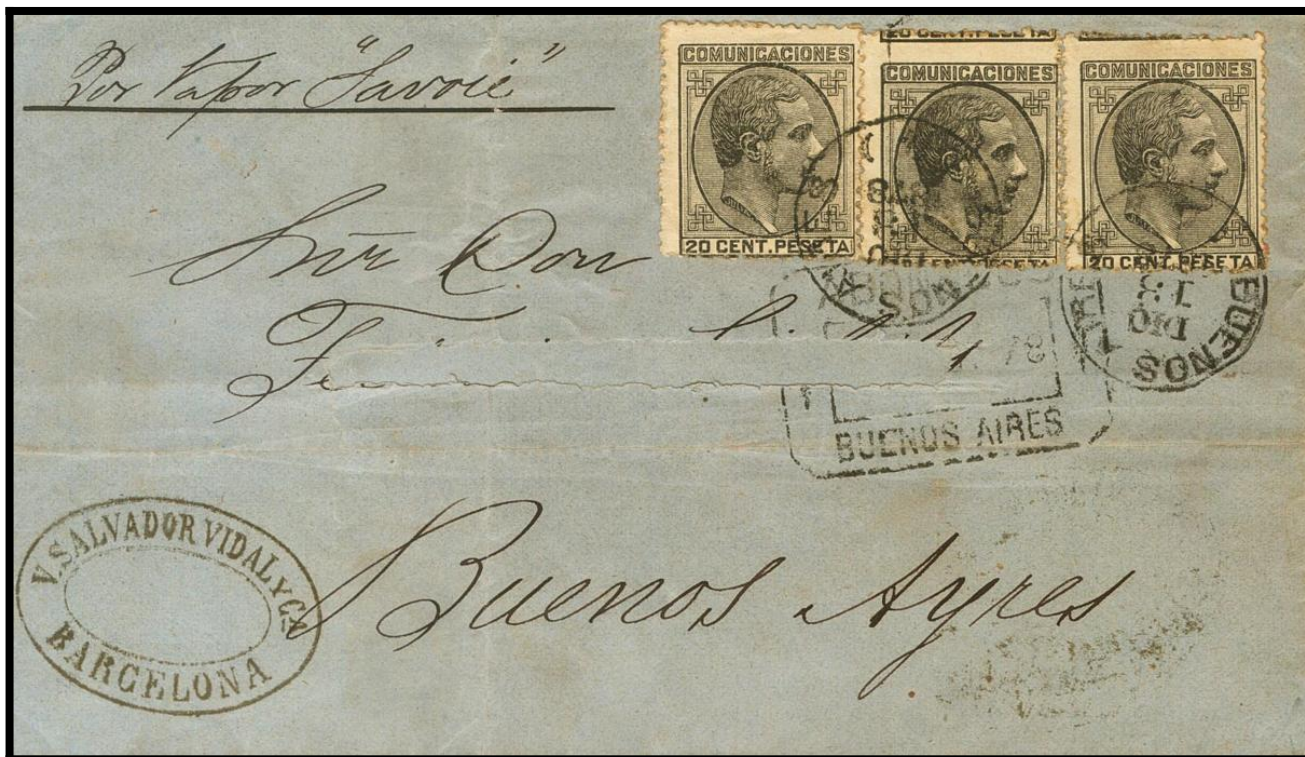 Por Vapor "Savoie"
COMUNICACIONES
20 CENT. PESETA
20 CENT. PESETA
COMUNICACIONES
CENT. PESETA
COMUNICACIONES
20 CENT. PESETA
Sñr Don
78
BUENOS
BUENOS AIRES
Buenos Ayres
V. SALVADOR VIDAL Y CA
BARCELONA